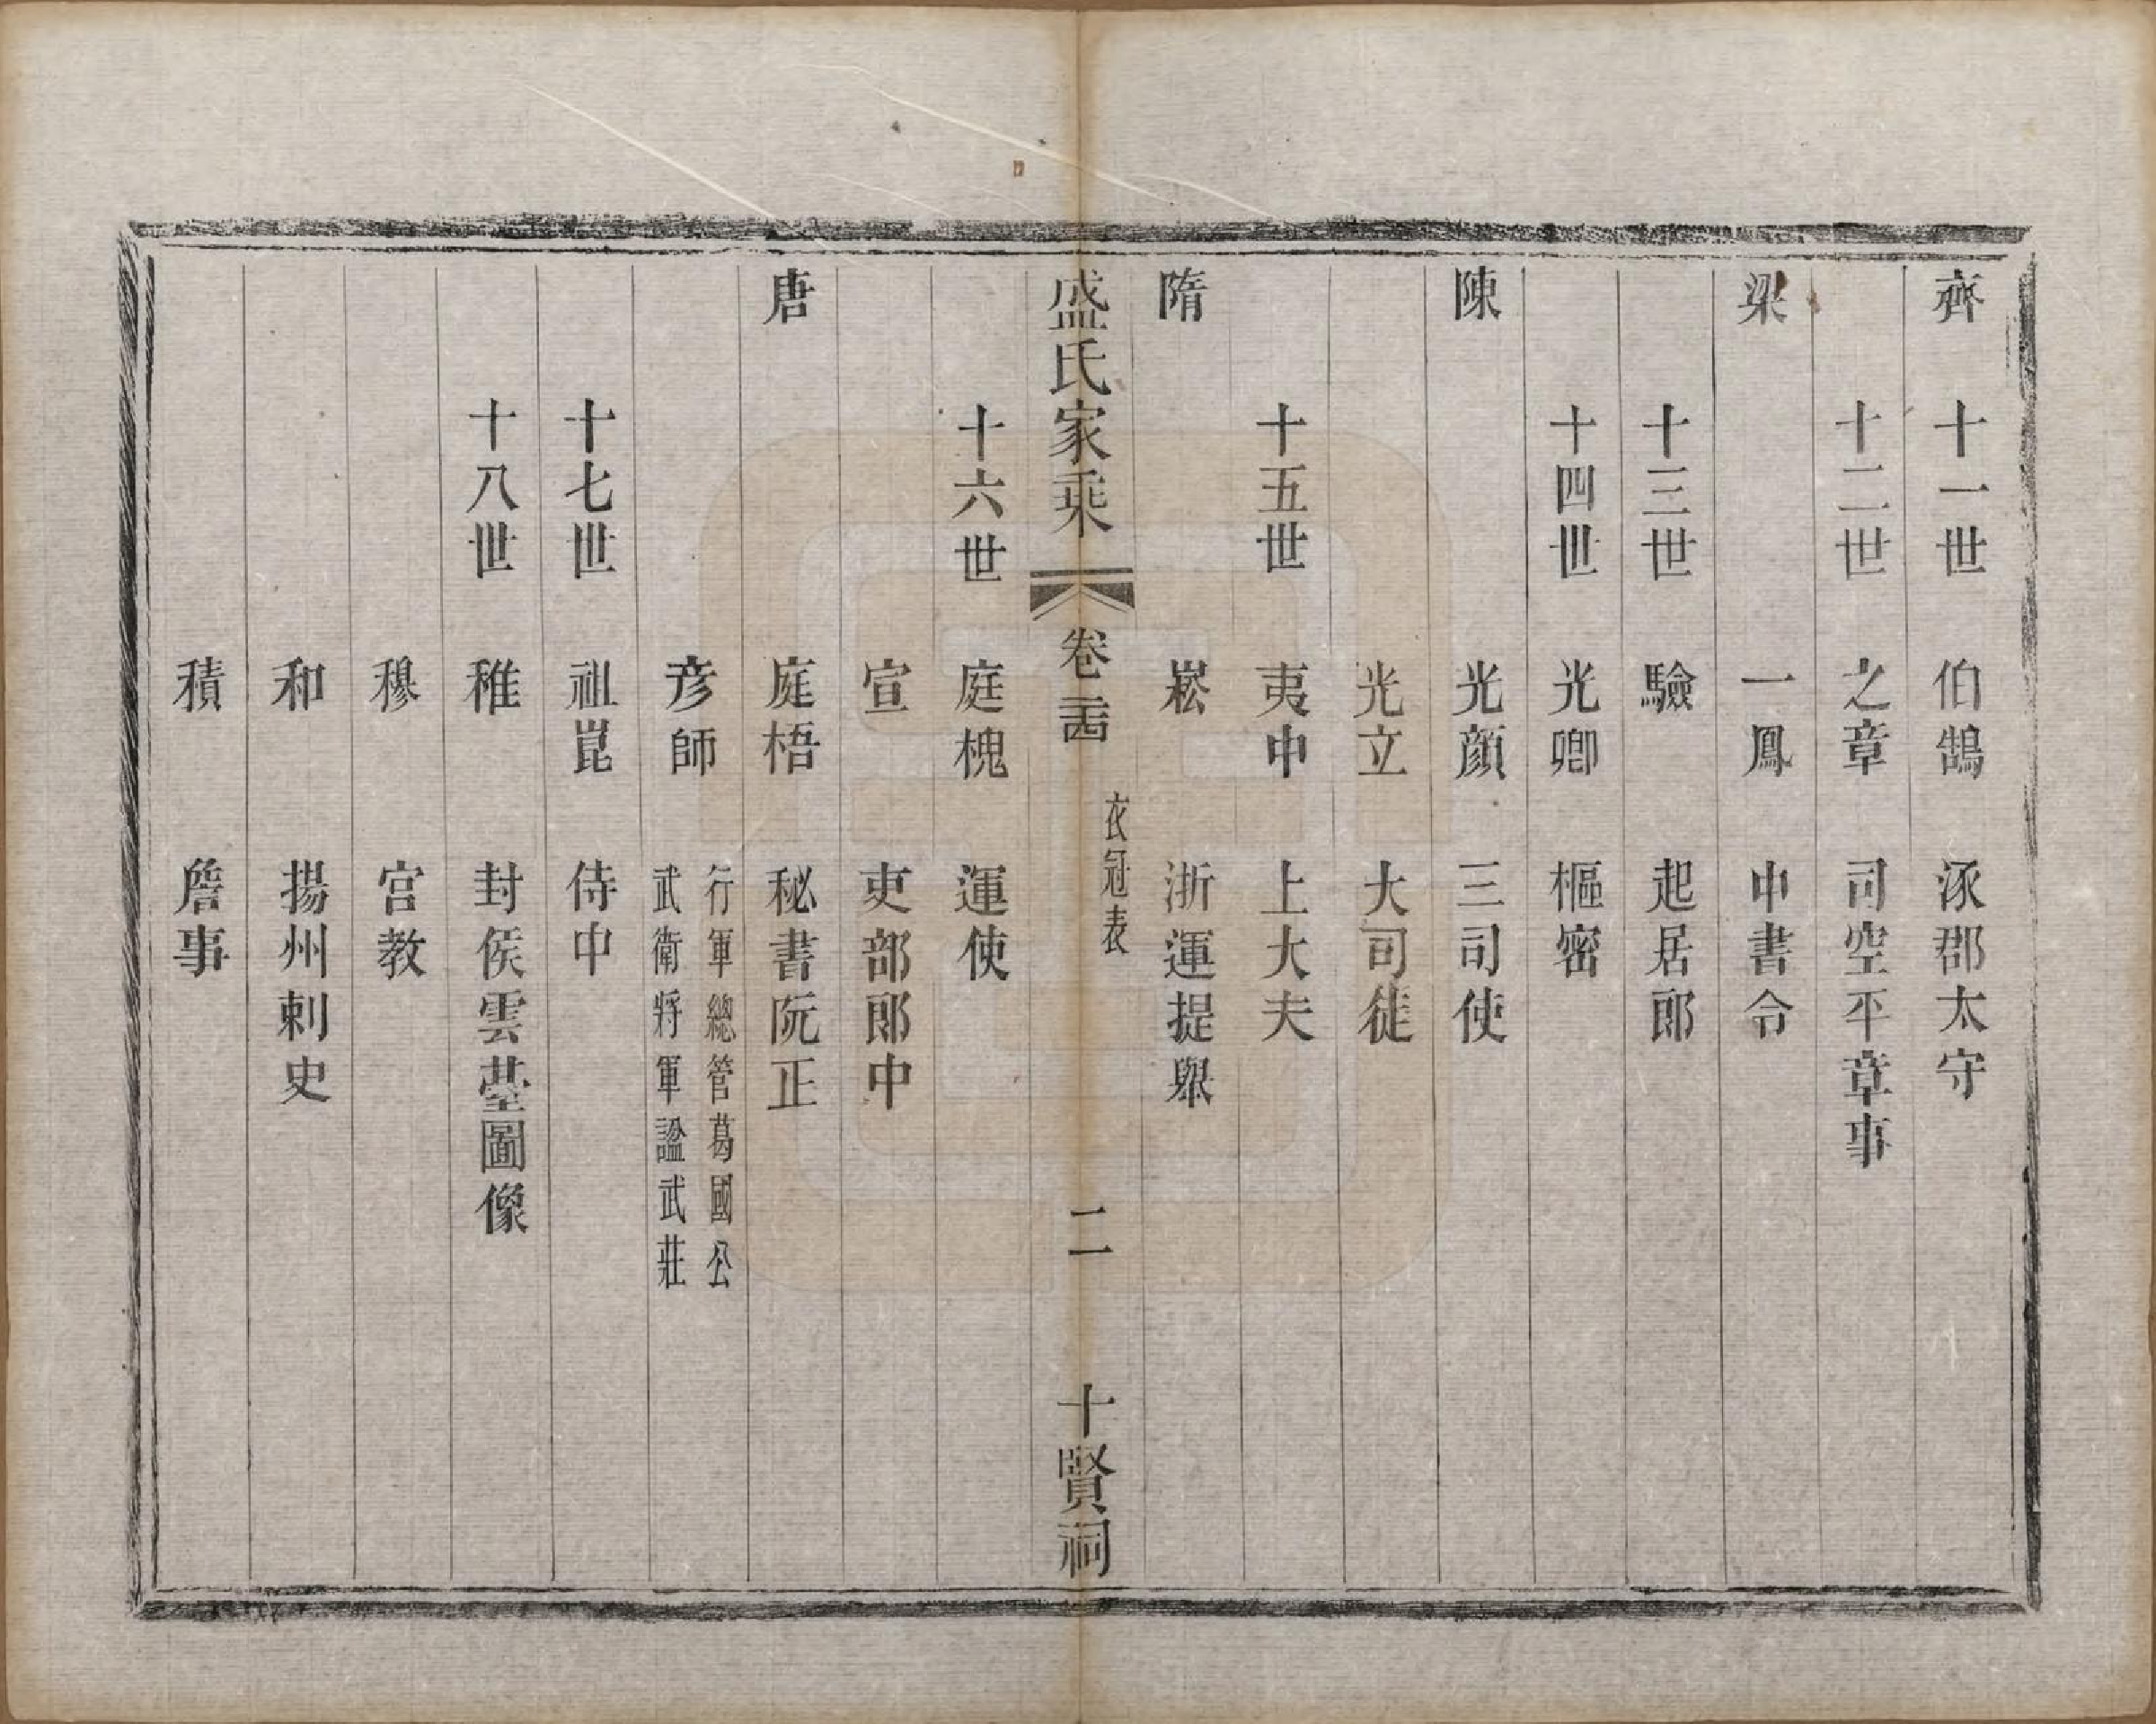 齊 十一世 伯鵠 涿郡太守
十二世 之章 司空平章事
梁 一鳳 中書令
十三世 驗 起居郎
十四世 光卿 樞密
陳 光顔 三司使
光立 大司徒
十五世 夷中 上大夫
隋 崧 浙運提舉
盛氏家乘 卷二十四 衣冠表 二 十賢祠
十六世 庭槐 運使
宣 吏部郎中
唐 庭梧 秘書阮正
彦師 行軍總管葛國公
武衛將軍謚武莊
十七世 祖崑 侍中
十八世 稚 封侯雲臺圖像
穆 宮教
和 揚州刺史
積 詹事